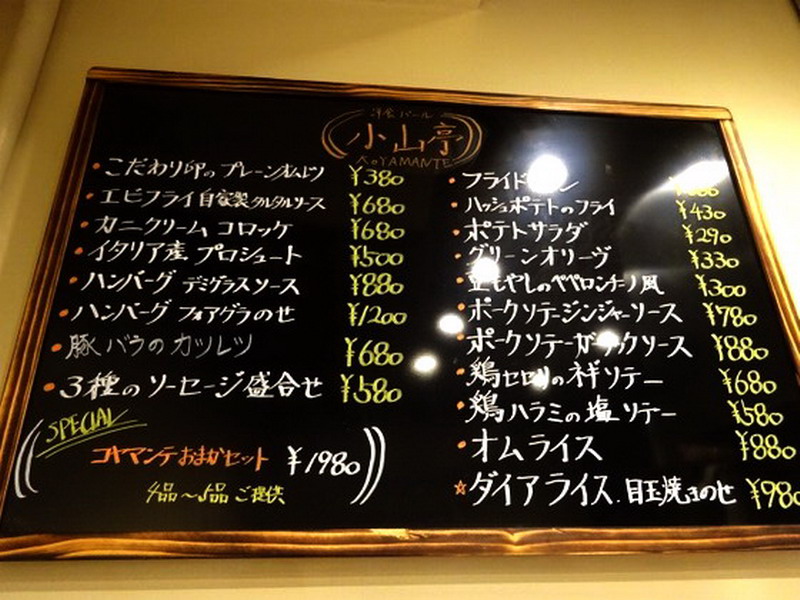 洋食バール
小山亭
KOYAMANTE
・こだわり卵のプレーンオムレツ ¥380
・エビフライ自家製タルタルソース ¥680
・カニクリームコロッケ ¥680
・イタリア産プロシュート ¥500
・ハンバーグ デミグラスソース ¥880
・ハンバーグ フォアグラのせ ¥1200
・豚バラのカツレツ ¥680
・3種のソーセージ盛合せ ¥580
SPECIAL
コヤマンテおまかセット ¥1980
4品〜5品ご提供
・フライド
・ハッシュポテトのフライ ¥430
・ポテトサラダ ¥290
・グリーンオリーヴ ¥330
・豆もやしのペペロンチーノ風 ¥300
・ポークソテージンジャーソース ¥780
・ポークソテーガーリックソース ¥880
・鶏セセリの ソテー ¥680
・鶏ハラミの塩ソテー ¥580
・オムライス ¥880
☆ダイアライス.目玉焼きのせ ¥980